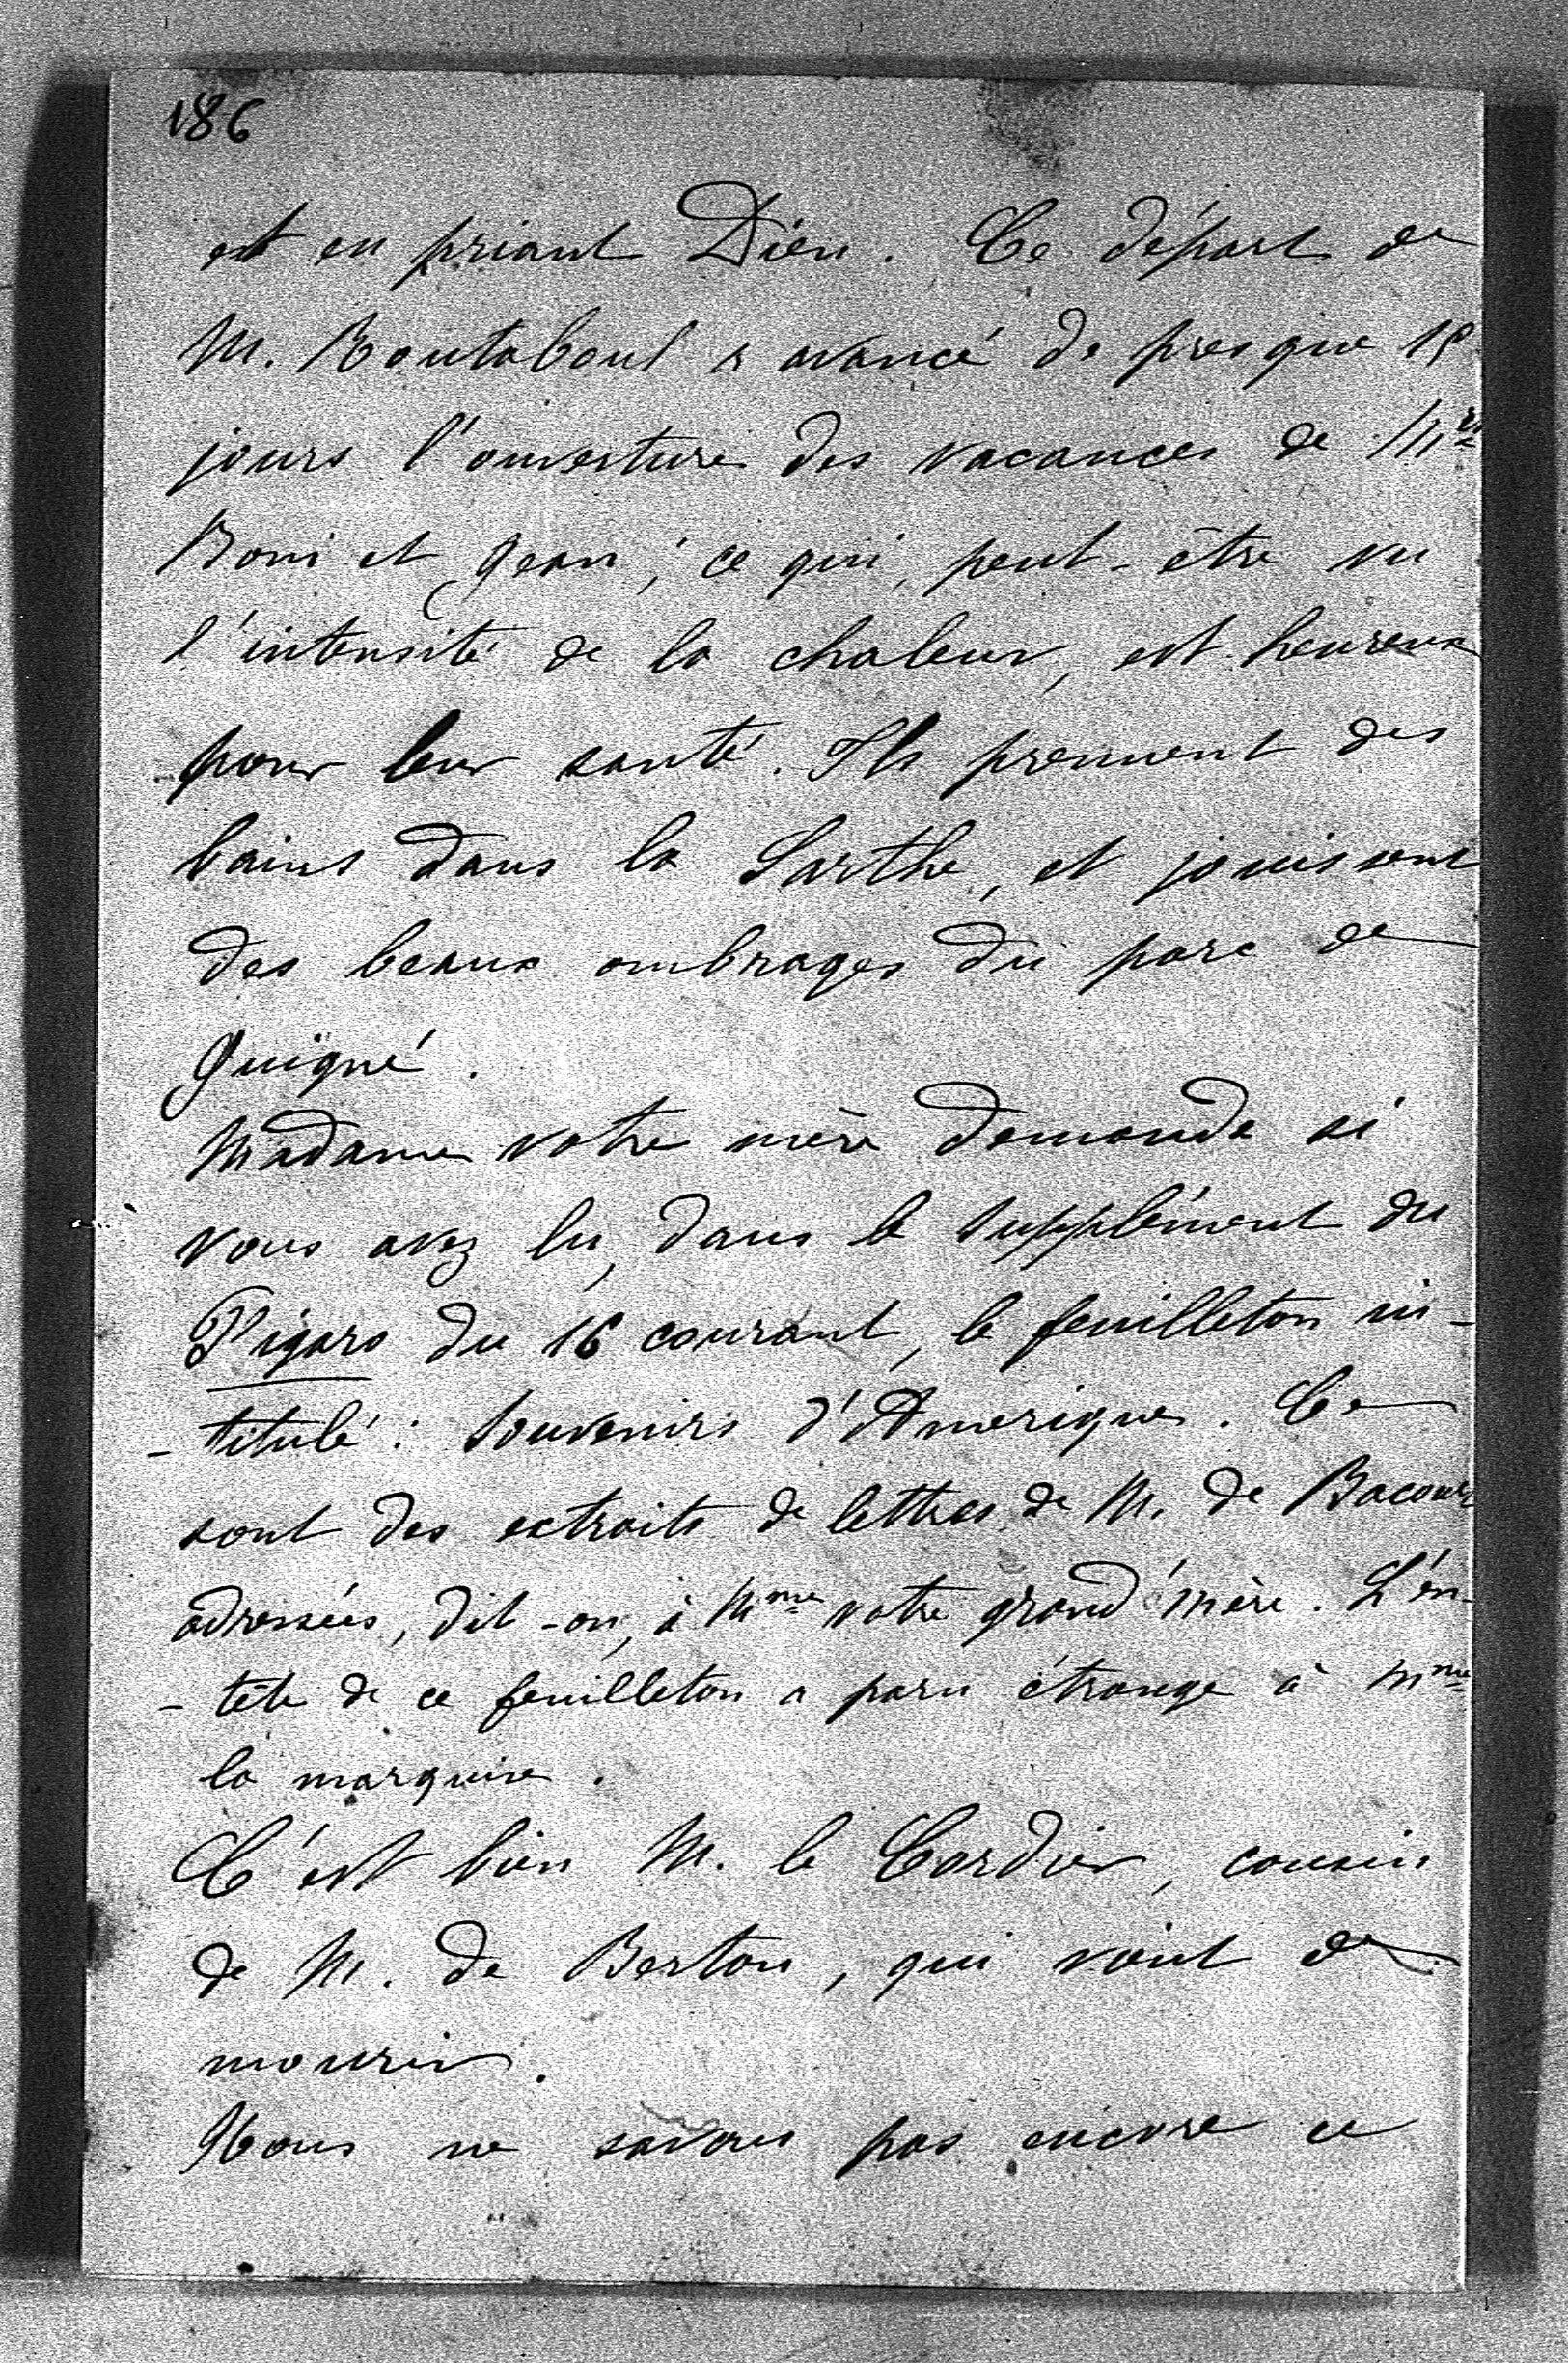 186
est en priant Dieu. Ce départ de
M. Boutaboul a avancé de presque 15
jours l'ouverture des vacances de Mrs
Boni et Jean; ce qui, peut-être vu
l'intensité de la chaleur, est heureux
pour leur santé. Ils prennent des
bains dans la Sarthe, et jouissent
des beaux ombrages du parc de
Juigné.
Madame votre mère demande si
vous avez lu, dans le supplément du
Figaro du 16 courant, le feuilleton in-
-titulé: Souvenirs d'Amérique. Ce
sont des extraits de lettres de M. de Bacourt
adressées, dit-on, à Mme votre grand'mère. L'en-
-tête de ce feuilleton a paru étrange à Mme
la marquise.
C'est bien M. le Cordier, cousin
de M. de Berton, qui vient de
mourir.
Nous ne savons pas encore ce